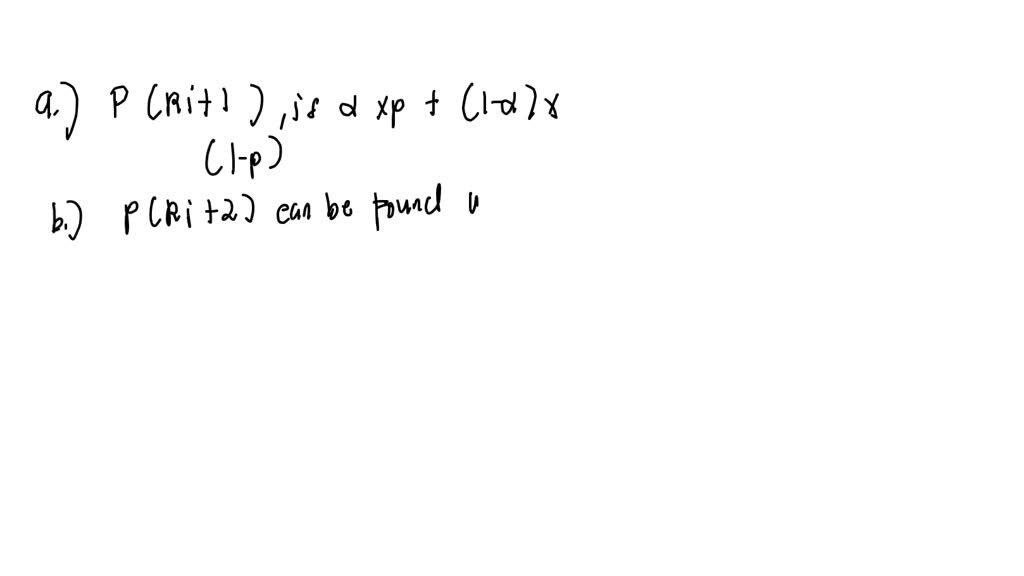 a.) P (Ri+1), is α xp + (1-α) x
(1-p)
b.) P(Ri+2) can be found u